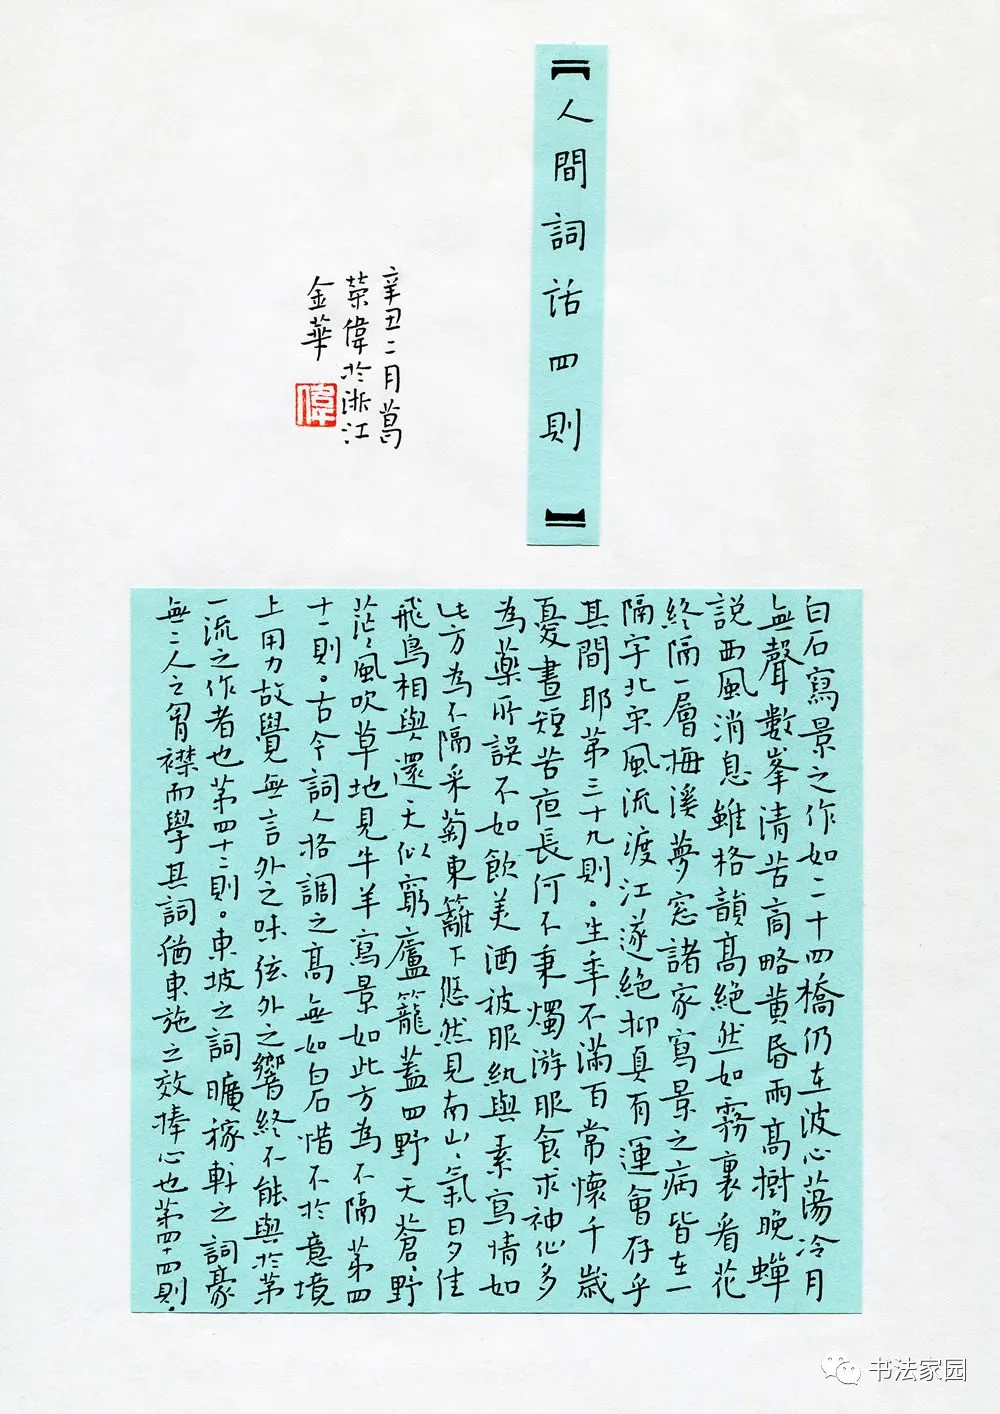 【人間詞話四則】
白石寫景之作如二十四橋仍在波心蕩冷月
無聲數峯清苦商略黄昏雨高樹晚蟬
説西風消息雖格韻高絕然如霧裏看花
終隔一層梅溪夢窓諸家寫景之病皆在一
隔字北宋風流渡江遂絕抑真有運會存乎
其間耶第三十九則。生年不滿百常懷千歲
憂晝短苦夜長何不秉燭游服食求神仙多
為藥所誤不如飲美酒被服紈與素寫情如
此方為不隔采菊東籬下悠然見南山、氣日夕佳
飛鳥相與還天似窮廬籠蓋四野天蒼、野
茫、風吹草地見牛羊寫景如此方為不隔第四
十一則。古今詞人格調之高無如白石惜不於意境
上用力故覺無言外之味弦外之響終不能與於第
一流之作者也第四十二則。東坡之詞曠稼軒之詞豪
無二人之胷襟而學其詞猶東施之效捧心也第四十四則。
辛丑二月葛
榮偉於浙江
金華
偉
书法家园